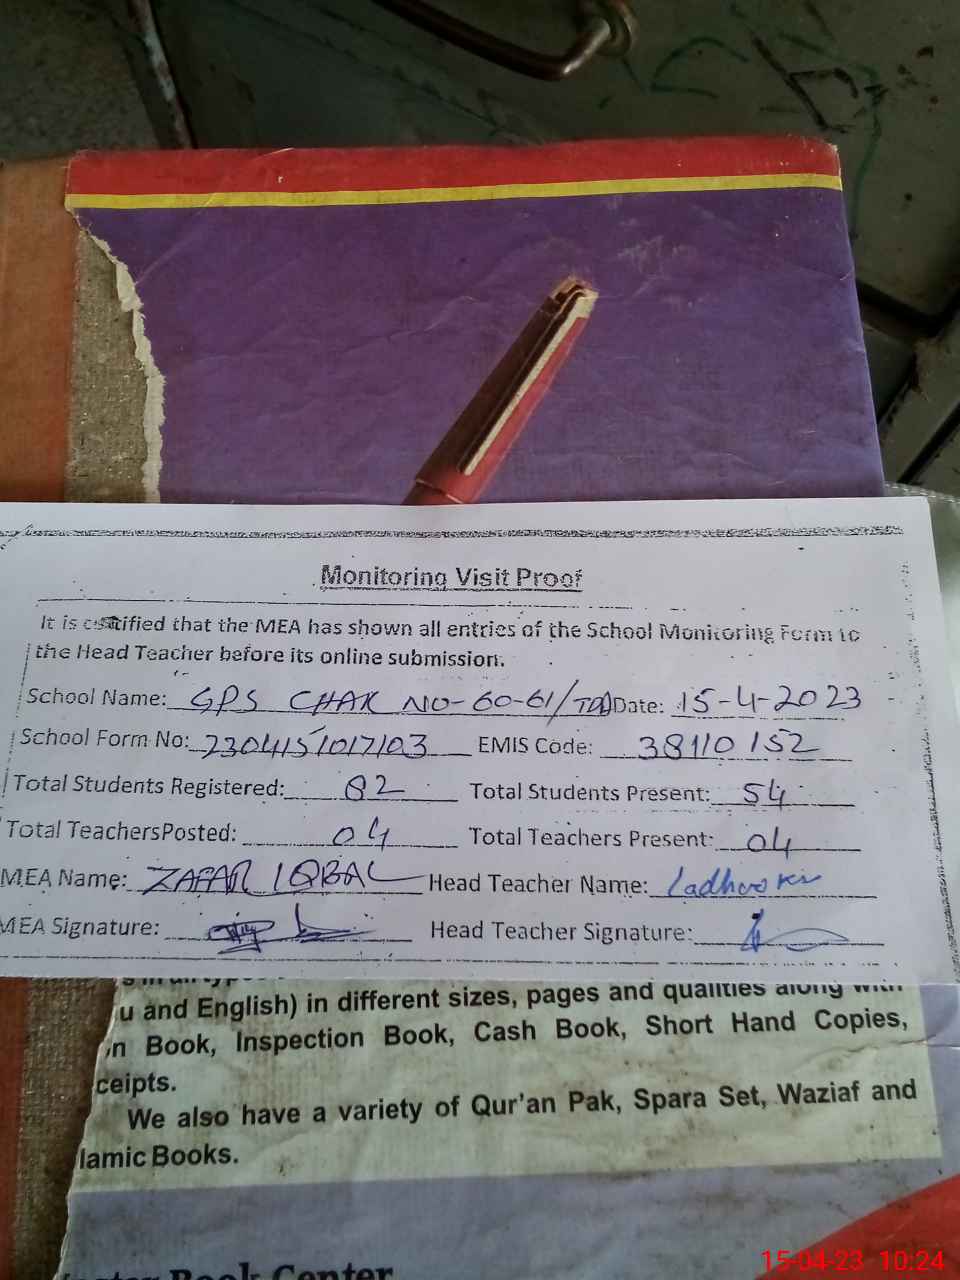 Monitoring Visit Proof
It is certified that the MEA has shown all entries of the School Monitoring Form to
the Head Teacher before its online submission.
School Name: GPS CHAK NO-60-61/TDA Date: 15-4-2023
School Form No: 2304151017103 EMIS Code: 38110152
Total Students Registered: 82 Total Students Present: 54
Total TeachersPosted: 04 Total Teachers Present: 04
MEA Name: ZAFAR IQBAL Head Teacher Name:
MEA Signature: Head Teacher Signature:
u and English) in different sizes, pages and qualities along with
n Book, Inspection Book, Cash Book, Short Hand Copies,
ceipts.
We also have a variety of Qur'an Pak, Spara Set, Waziaf and
lamic Books.
Book Center
15-04-23 10:24